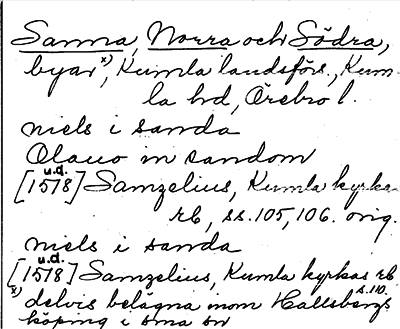 Sanna, Norra och Södra,
byar x), Kumla landsförs., Kum-
la hd, Örebro l.
niels i sanda
Olauo in sandom
u.d.
[1578] Samzelius, Kumla kyrkas
rb, ss. 105, 106. orig.
niels i sanda
u.d.
[1578] Samzelius, Kumla kyrkas rb
s. 110.
x) delvis belägna inom Hallsbergs
köping i sma sn